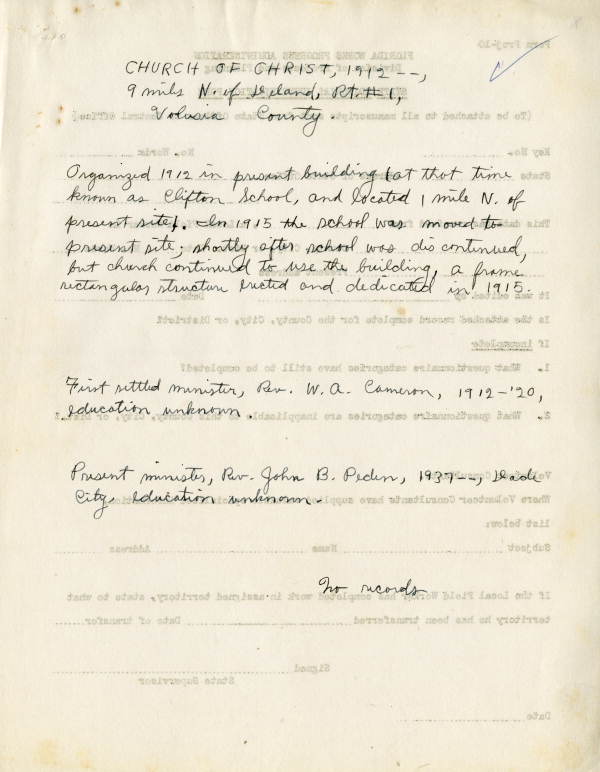 CHURCH OF CHRIST, 1912 --,
9 mils N. of DeLand, Rt. #1,
Volusia County.
Organized 1912 in present building (at that time
known as Clifton School, and located 1 mile N. of
present site). In 1915 the school was moved to
present site; shortly after school was discontinued,
but church continued to use the building, a frame
rectangular structure erected and dedicated in 1915.
First settled minister, Rev. W. A. Cameron, 1912-'20,
education unknown.
Present minister, Rev. John B. Peden, 1937--, Dade
City, education unknown.
No records